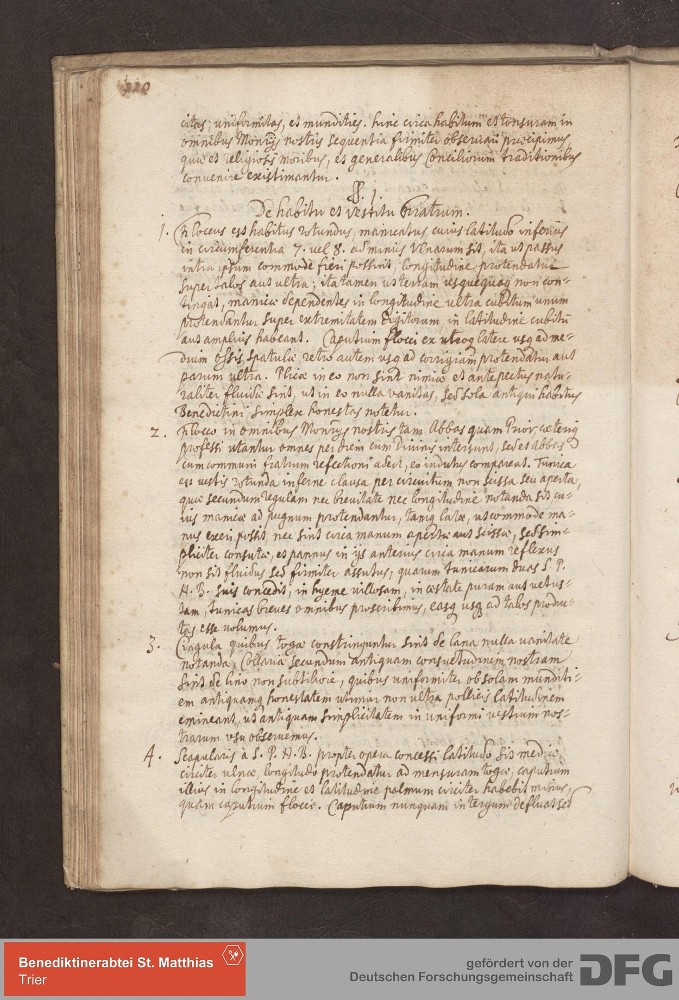 220
citas, uniformitas, et mundities. hinc circa habitum et tonsuram in
omnibus Monrijs nostris sequentia firmiter observari præcipimus,
quæ et religiosis moribus, et generalibus Conciliorum traditionibus
convenire existimantur.
§. 1.
De habitu et vestitu fratrum.
1. Floccus est habitus rotundus, manicatus cuius latitudo inferius
in circumferentia 7. vel 8. ad minus Vlnarum sit, ita ut passus
intra ipsum commode fieri possint, longitudine protendatur
super talos aut ultra, ita tamen ut terram usquequaq non con-
tingat, manicæ dependentes in longitudine ultra cubitum unum
protendantur super extremitatem digitorum in latitudine cubitū
aut amplius habeant. Caputium flocci ex utroq latere usq ad me-
dium ossis spatulæ retro autem usq ad corrigiam protendatur aut
parum ultra. Plicæ in eo non sint nimiæ et ante pectus natu-
raliter fluidæ sint, ut in eo nulla vanitas, sed sola antiqui habitus
Benedictini simplex honestas notetur.
2. Flocco in omnibus Monrijs nostris tam Abbas quam Prior, cæteriq
professi utantur omnes per diem cum Divinis intersunt, sed et Abbas
cum communi fratrum refectioni adest, eo indutus compareat. Tunica
est vestis rotunda inferne clausa per circuitum non scissa seu aperta,
quæ secundum regulam nec brevitate nec longitudine notanda sit cu-
ius manicæ ad pugnum protendantur, tamq latæ, ut commode ma-
nus exeri possit, nec sint circa manum apertæ aut scissæ, sed sim-
pliciter consutæ, et pannus in ijs anterius circa manum reflexus
non sit fluidus sed firmiter assutus; quarum tunicarum duas S. P.
N. B. suis concedit, in hyeme villosam, in æstate puram aut vetus-
tam, tunicas breves omnibus proscribimus, easq usq ad talos produc-
tas esse volumus.
3. Cingula quibus togæ constringuntur sint de lana nulla vanitate
notanda, Collaria secundum antiquam consuetudinem nostram
sint de lino non subtiliore, quibus uniformiter ob solam munditi-
em antiquamq honestatem utimur non ultra pollicis latitudinem
emineant, ut antiquam simplicitatem in uniformi vestium nos-
trarum usu observemus.
4. Scapularis à S. P. N. B. propter opera concessi latitudo sit mediæ
circiter ulnæ, longitudo protendatur ad mensuram togæ, caputium
illius in longitudine et latitudine palmum circiter habebit minus,
quam caputium flocci. Caputium nunquam in tergum defluat sed
Benediktinerabtei St. Matthias
Trier
gefördert von der
Deutschen Forschungsgemeinschaft
DFG